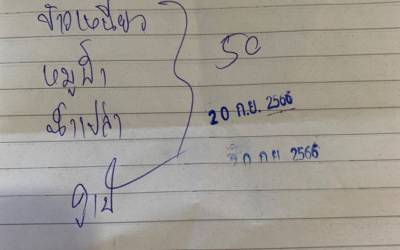 ข้าวเหนียว
หมูปิ้ง
น้ำเปล่า
50
20 ก.ย. 2566
ก ย 2566